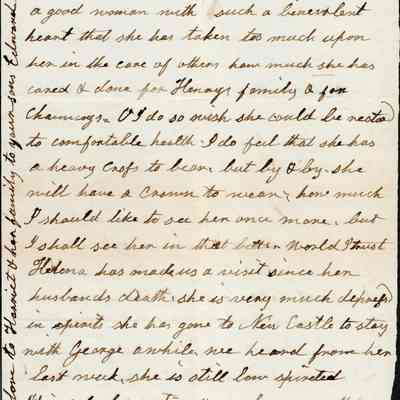 a good woman with such a benevolent
heart that she has taken too much upon
her in the care of others how much she has
cared & done for Henrys family & for
Chaunceys. O I do so wish she could be restor
to comfortable health I do feel that she has
a heavy Cross to bear but by & by she
will have a Crown to wear, how much
I should like to see her once more, but
I shall see her in that better World I trust
Helena has made us a visit since her
husbands death, she is very much depress
in spirits she has gone to New Castle to stay
with George awhile, we heard from her
last week, she is still low spirited
love to Harriet & her family to your sons Edward